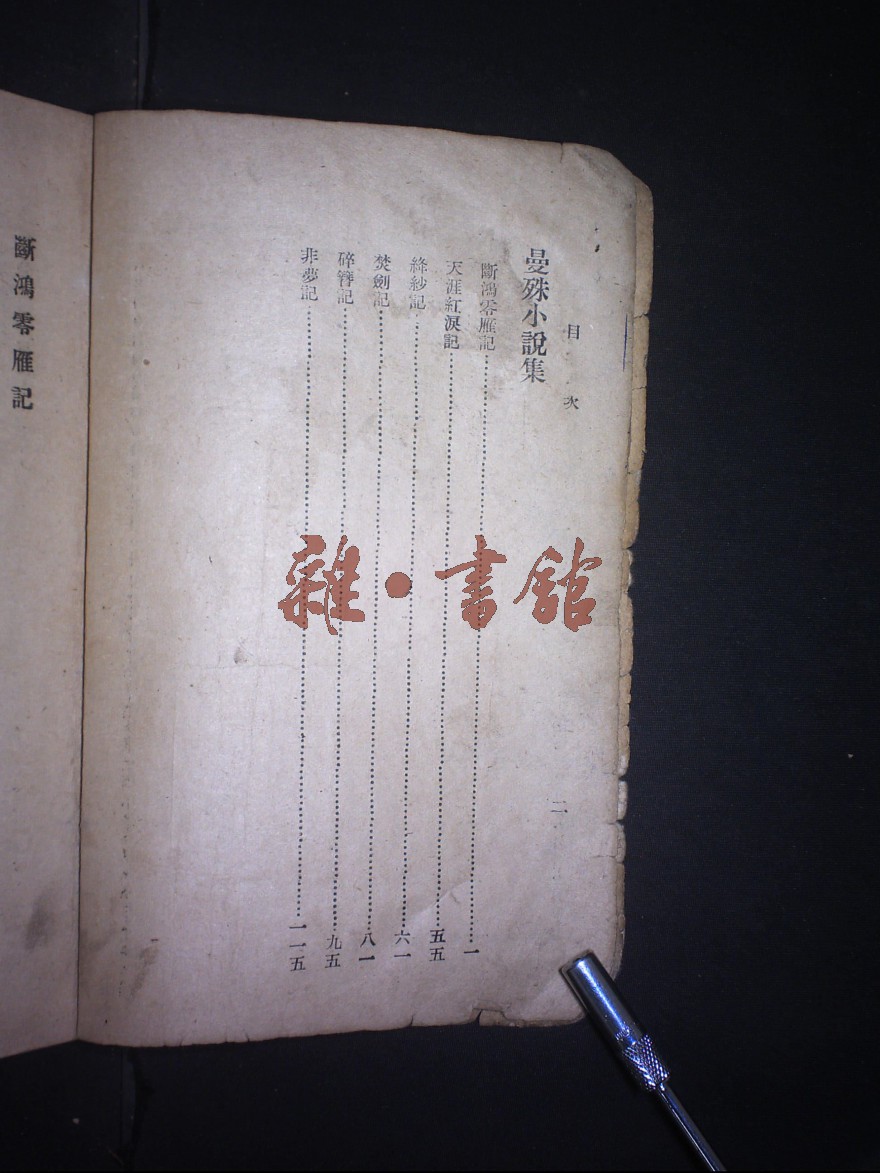 目次
二
曼殊小說集
斷鴻零雁記……一
天涯紅淚記……五五
絳紗記……六一
焚劍記……八一
碎簪記……九五
非夢記……一一五
斷鴻零雁記
雜·書館